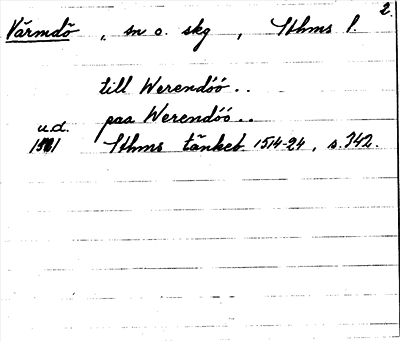 2.
Värmdö , sn o. skg , Sthms l.
till Werendóó . .
paa Werendóó . .
u.d.
1521 Sthms tänkeb. 1514-24 , s. 342.